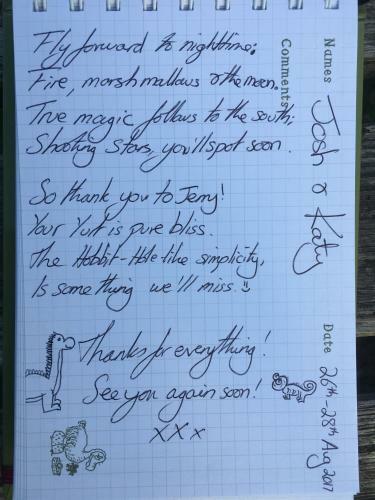 Names Josh & Katy
Date 26th-28th Aug 2017
Comments
Fly forward to nighttime:
Fire, marshmallows & the moon.
True magic follows to the south;
Shooting stars, you'll spot soon.
So thank you to Jerry!
Your Yurt is pure bliss.
The Hobbit-Hole like simplicity,
Is something we'll miss. :)
Thanks for everything!
See you again soon!
X X x